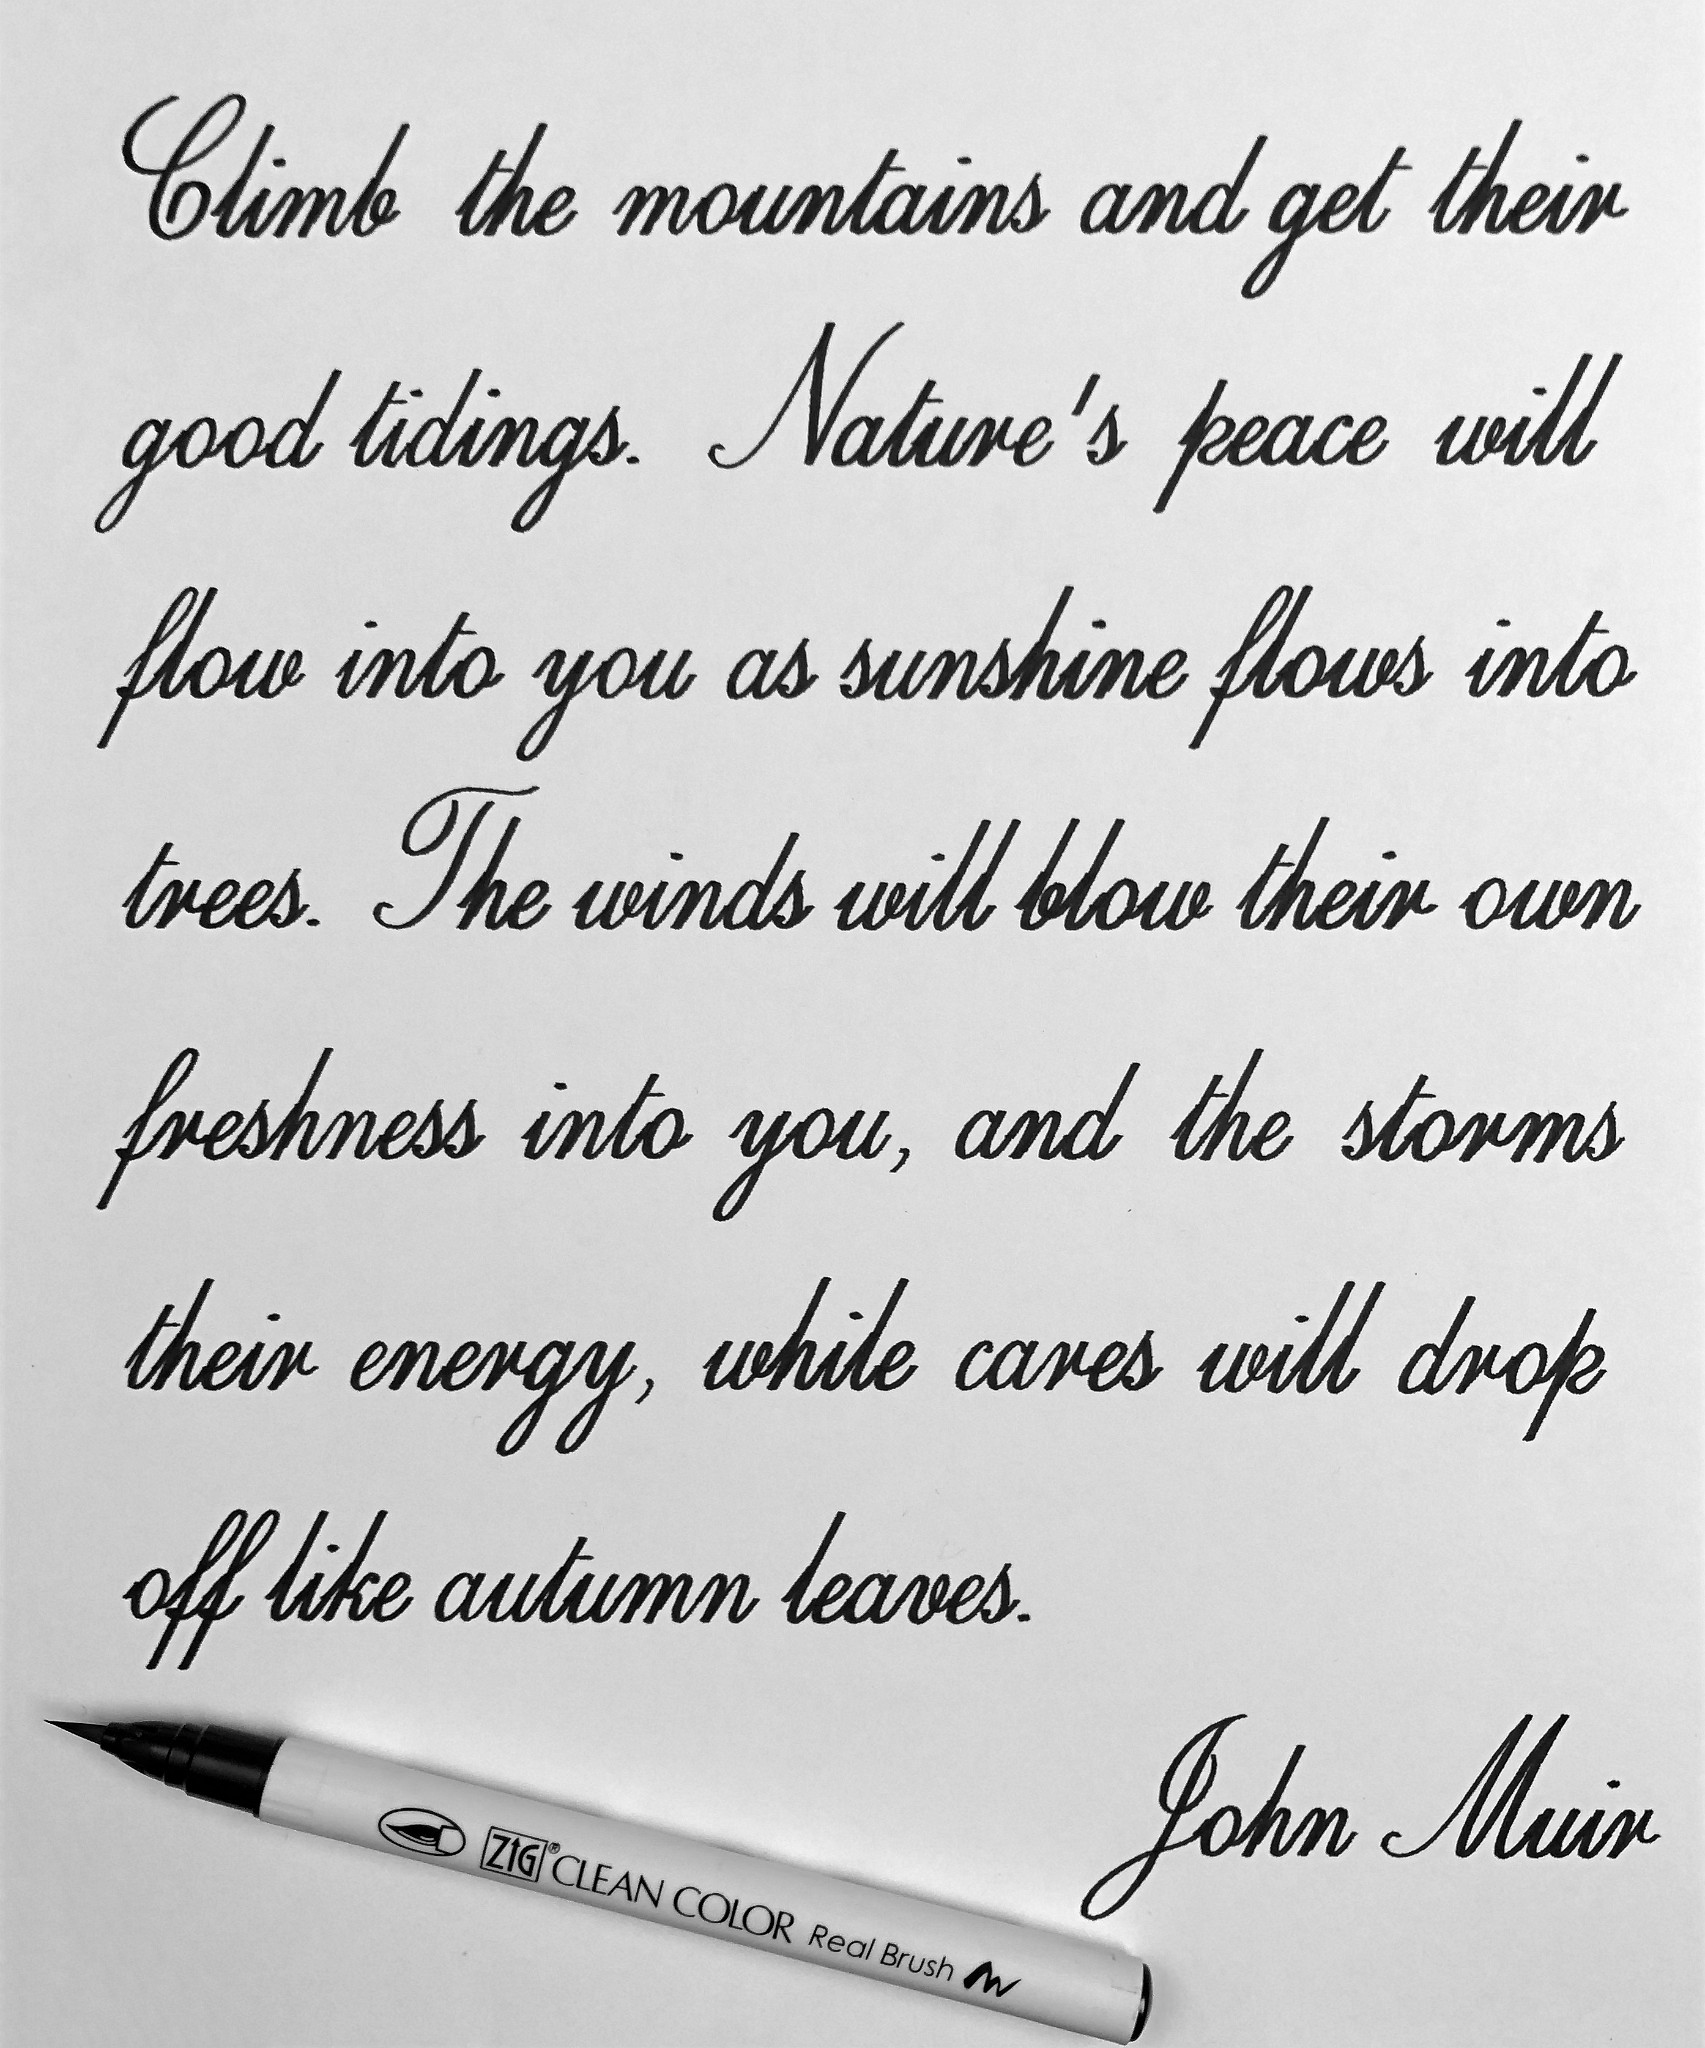 Climb the mountains and get their
good tidings. Nature's peace will
flow into you as sunshine flows into
trees. The winds will blow their own
freshness into you, and the storms
their energy, while cares will drop
off like autumn leaves.
John Muir
ZIG® CLEAN COLOR Real Brush